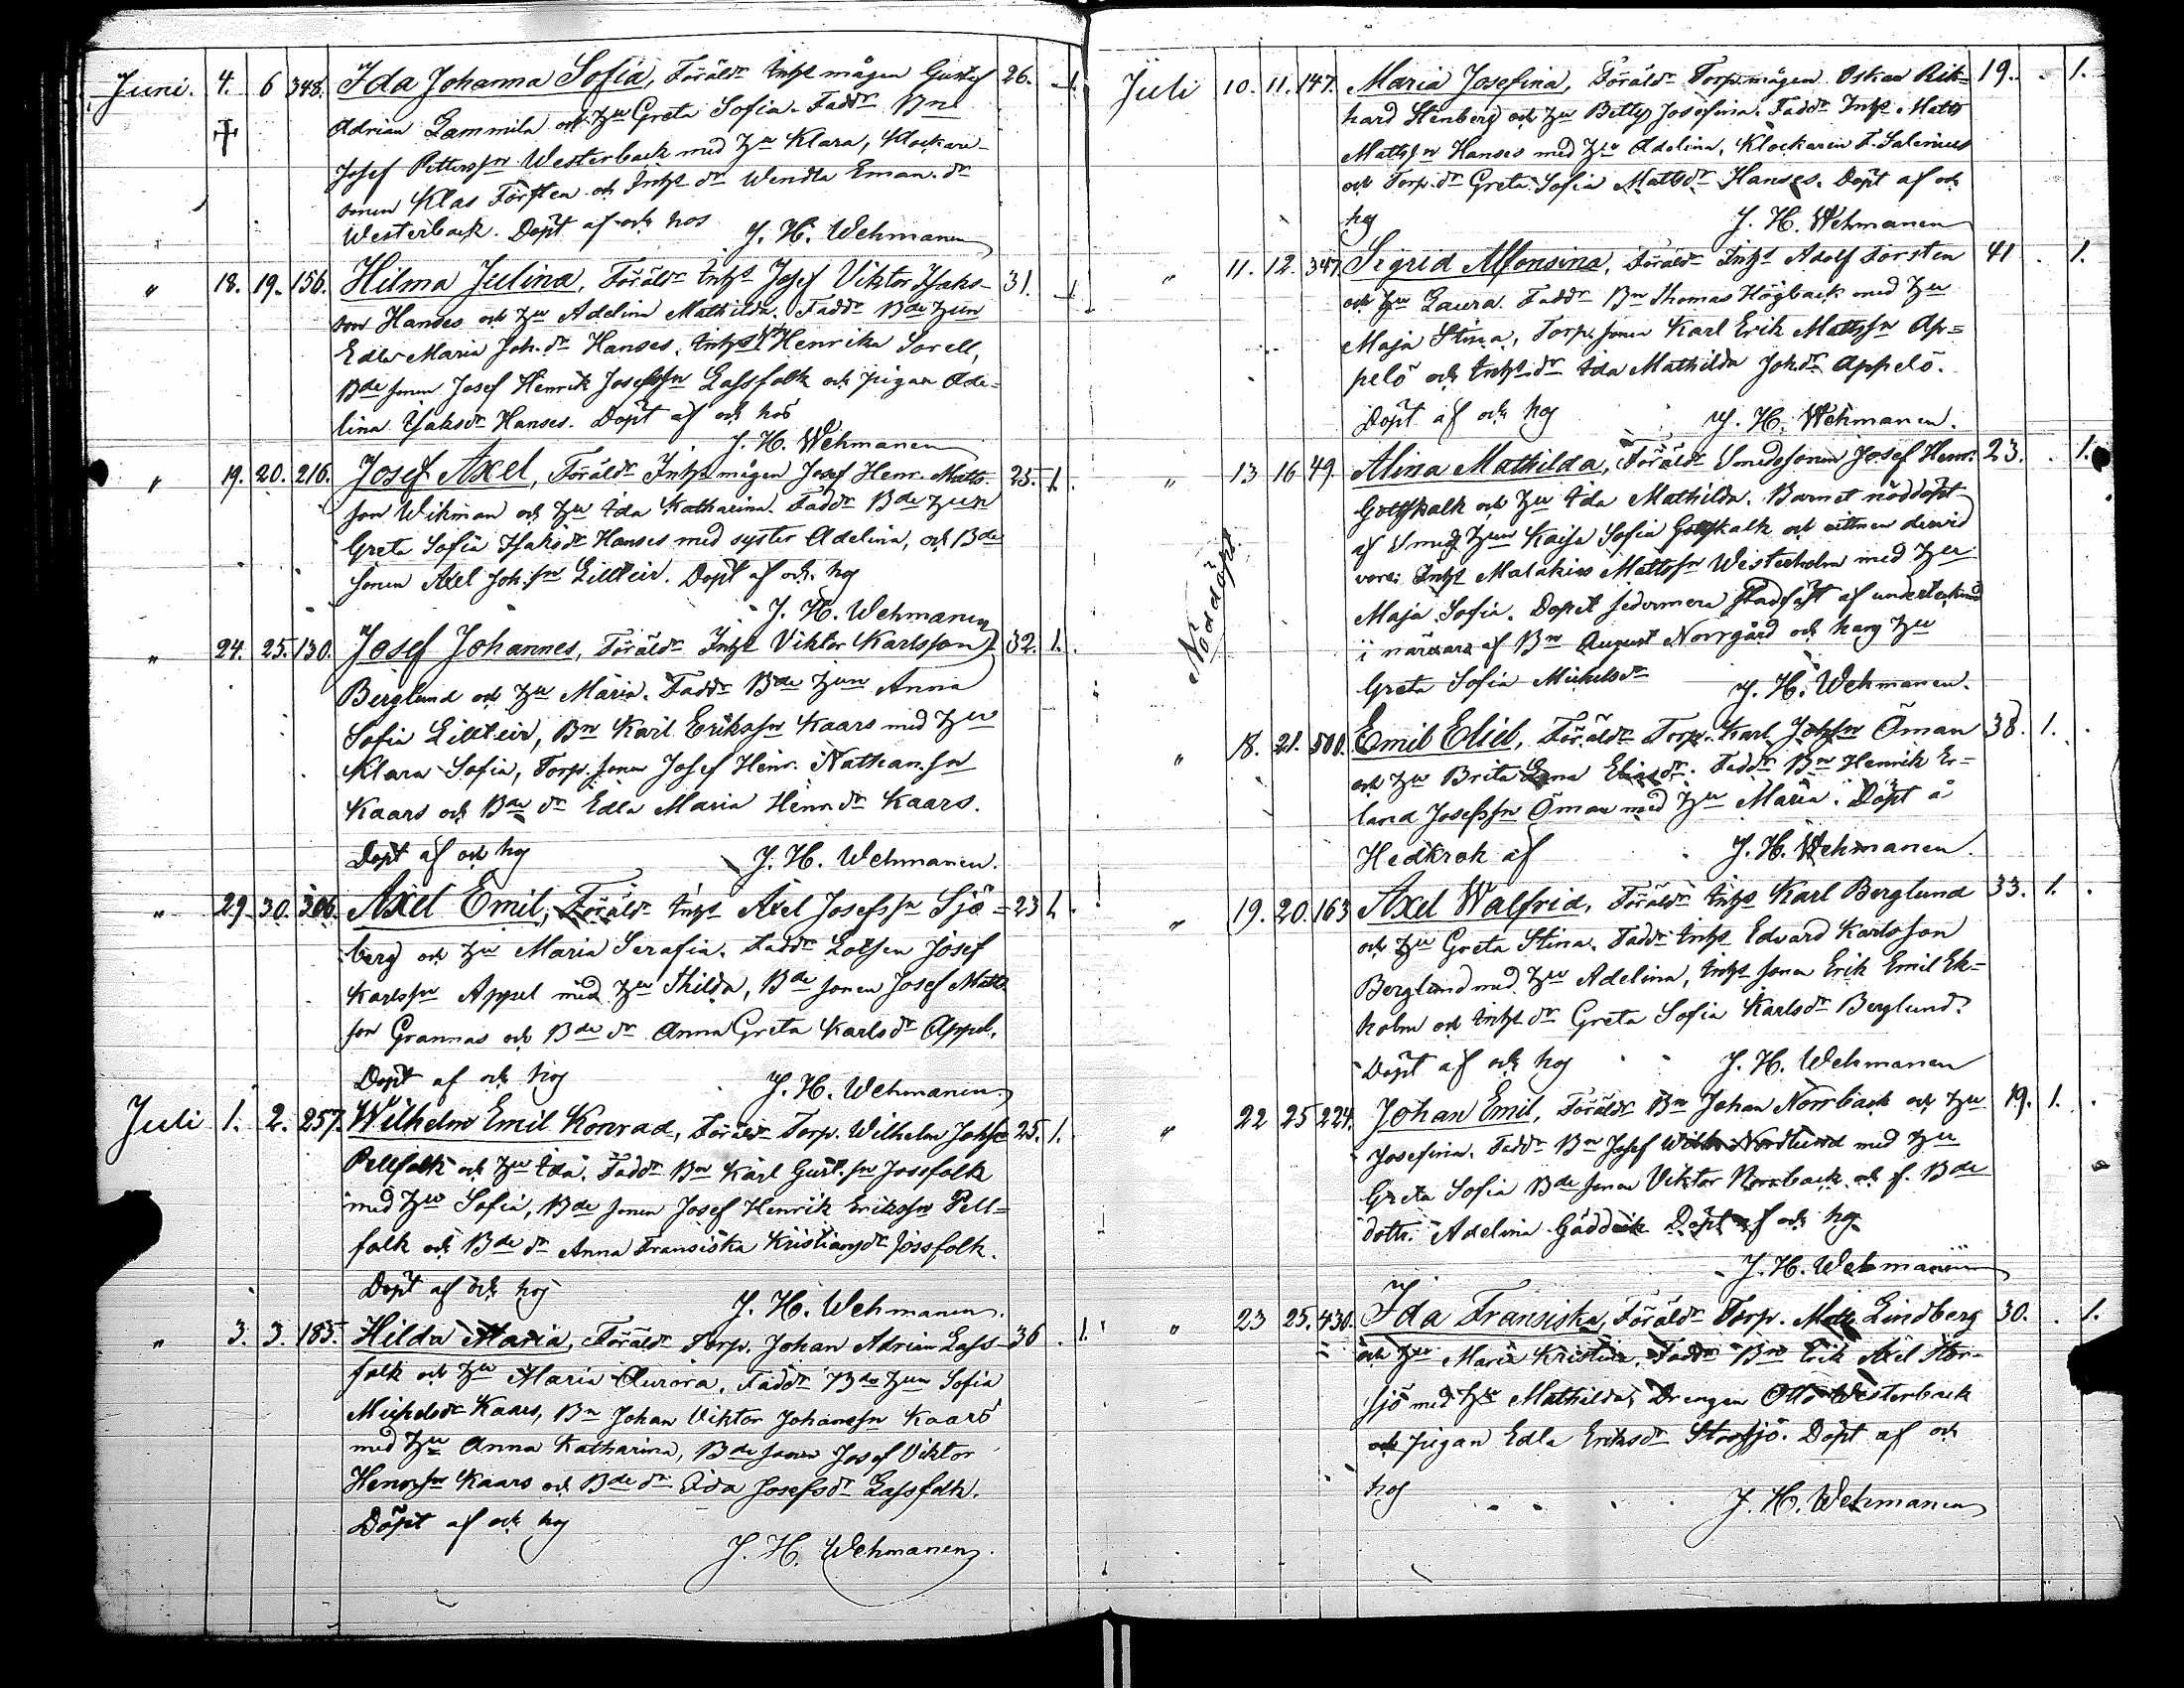 Juni. 4. 6 348. Ida Johanna Sofia, Föräldr Inhs mågen Gustaf 26. 1.
Adrian Lammila och hu Greta Sofia. Faddr Bn
Josef Petterssn Westerback med hu Klara, Klockare-
sonen Klas Forsten och Inhs dr Wendla Eman. dr
Westerback. Döpt af och hos J. H. Wehmanen
" 18. 19. 156. Hilma Julina, Föräldr Inhs Josef Viktor Isaks- 31. 1
son Hanses och hu Adelina Mathilda. Faddr Bde hun
Edla Maria Joh. dr Hanses, Inhs Henrika Sorell,
Bde sonen Josef Henrik Josefssn Lassfolk och pigan Ade-
lina Isaksdr Hanses. Döpt af och hos
J. H. Wehmanen
" 19. 20. 216. Josef Axel, Föräldr Inhs mågen Josef Henr. Matts- 25. 1.
son Wikman och hu Ida Katharina. Faddr Bde hun
Greta Sofia Isaksdr Hanses med syster Adelina, och Bde
sonen Axel Joh. sn Lillteir. Döpt af och hos
J. H. Wehmanen
" 24. 25. 130. Josef Johannes, Föräldr Inhs Viktor Karlsson 32. 1.
Berglund och hu Maria. Faddr Bde hun Anna
Sofia Lillteir, Bn Karl Erikssn Kaars med hu
Klara Sofia, Torp. sonen Josef Henr. Nathan. sn
Kaars och Bde dr Edla Maria Henr. dr Kaars.
Döpt af och hos J. H. Wehmanen.
" 29. 30. 306. Axel Emil, Föräldr Inhs Axel Josefssn Sjö= 23 1.
berg och hu Maria Serafia. Faddr Lotsen Josef
Karlssn Appel med hu Thilda, Bde sonen Josef Matts
son Grannas och Bde dr Anna Greta Karlsdr Appel.
Döpt af och hos J. H. Wehmanen.
Juli 1. 2. 257. Wilhelm Emil Konrad, Föräldr Torp. Wilhelm Johssn 25. 1.
Pellfolk och hu Ida. Faddr Bn Karl Gust. sn Jossfolk
med hu Sofia, Bde sonen Josef Henrik Erikssn Pell=
folk och Bde dr Anna Fransiska Kristiansdr Jossfolk.
Döpt af och hos J. H. Wehmanen.
" 3. 3. 185. Hilda Maria, Föräldr Torp. Johan Adrian Lass- 36 . 1.
folk och hu Maria Aurora. Faddr Bde hun Sofia
Mickelsdr Kaars, Bn Johan Viktor Johanssn Kaars
med hu Anna Katharina, Bde sonen Josef Viktor
Henrssn Kaars och Bde dr Ida Josefsdr Lassfolk.
Döpt af och hos
J. H. Wehmanen.
Juli 10. 11. 147. Maria Josefina, Föräldr Torp. mågen Oskar Rik= 19. . 1.
hard Stenberg och hu Betty Josefina. Faddr Inhs Matts
Mattssn Hanses med hu Adelina, Klockaren F. Salenius
och Torp. dr Greta Sofia Mattsdr Hanses. Döpt af och
hos J. H. Wehmanen
" 11. 12. 347 Sigrid Alfonsina, Föräldr Inhs Adolf Forsten 41 . 1.
och hu Laura. Faddr Bn Thomas Högback med hu
Maja Stina, Torp. sonen Karl Erik Mattssn Ap=
pelö och Inhs dr Ida Mathilda Joh.dr Appelö.
Döpt af och hos J. H. Wehmanen.
" 13 16 49. Alina Mathilda, Föräldr Smedssonen Josef Henr. 23. . 1.
Nöddöpt.
Gottskalk och hu Ida Mathilda. Barnet nöddöpt
af Smeds hun Kajsa Sofia Gottskalk och vittnen dervid
voro: Inhs Malakias Mattssn Westerholm med hu
Maja Sofia. Dopet sedermera stadfäst af undertecknad
i närvaro af Bn August Norrgård och hans hu
Greta Sofia Mickelsdr J. H. Wehmanen.
" 18. 21. 500. Emil Eliel, Föräldr Torp. Karl Johssn Öman 38. 1. .
och hu Brita Lena Eliasdr. Faddr Bn Henrik Er=
land Josefssn Öman med hu Maria. Döpt å
Hedkrok af J. H. Wehmanen.
" 19. 20. 163 Axel Walfrid, Föräldr Inhs Karl Berglund 33. 1. .
och hu Greta Stina. Faddr Inhs Edvard Karlsson
Berglund med hu Adelina, Inhs sonen Erik Emil Ek=
holm och Inhs dr Greta Sofia Karlsdr Berglund.
Döpt af och hos J. H. Wehmanen
" 22 25 224. Johan Emil, Föräldr Bn Johan Norrback och hu 19. 1. .
Josefina. Faddr Bn Josef Nordlund med hu
Greta Sofia Bde sonen Viktor Norrback och f. Bde
dottr. Adelina Gäddvik Döpt af och hos
J. H. Wehmanen
" 23 25. 430. Ida Fransiska, Föräldr Torp. Matts Lindberg 30. . 1.
och hu Maria Kristina. Faddr Bn Erik Axel Stor-
sjö med hu Mathilda, Drengen Otto Westerback
och pigan Edla Eriksdr Storsjö. Döpt af och
hos J. H. Wehmanen